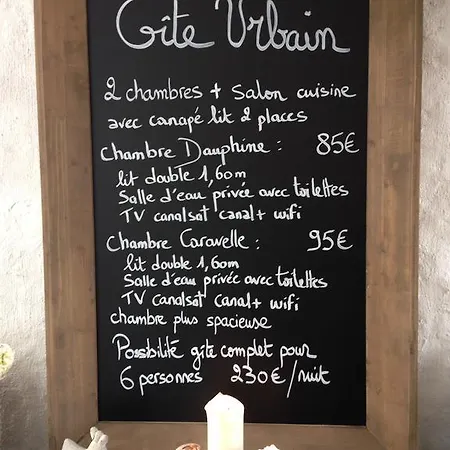 Gîte Urbain
2 chambres + Salon cuisine
avec canapé lit 2 places
Chambre Dauphine : 85€
lit double 1,60m
Salle d'eau privée avec toilettes
TV canalsat canal+ wifi
Chambre Caravelle : 95€
lit double 1,60m
Salle d'eau privée avec toilettes
TV canalsat canal+ wifi
chambre plus spacieuse
Possibilité gîte complet pour
6 personnes 230€/nuit